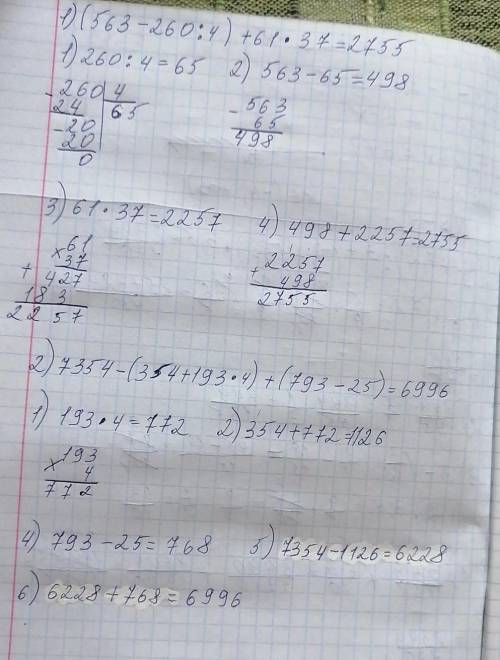 1) (563-260:4)+61·37=2755
1) 260:4=65 2) 563-65=498
-260|4 -563
24 65 65
-20 498
20
0
3) 61·37=2257 4) 498+2257=2755
×61 +2257
37 498
+427 2755
183
2257
2) 7354-(354+193·4)+(793-25)=6996
1) 193·4=772 2) 354+772=1126
×193
4
772
4) 793-25=768 5) 7354-1126=6228
6) 6228+768=6996